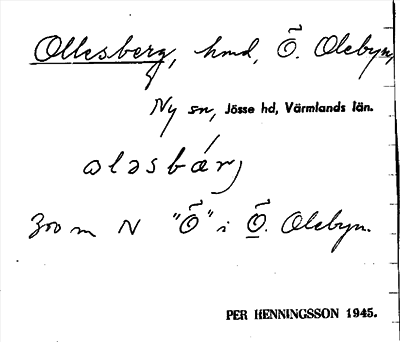 Ollesberg, hmd, Ö. Olebyn,
Ny sn, Jösse hd, Värmlands län.
ɷləsbárj
300 m N "Ö" i Ö. Olebyn.
PER HENNINGSSON 1945.